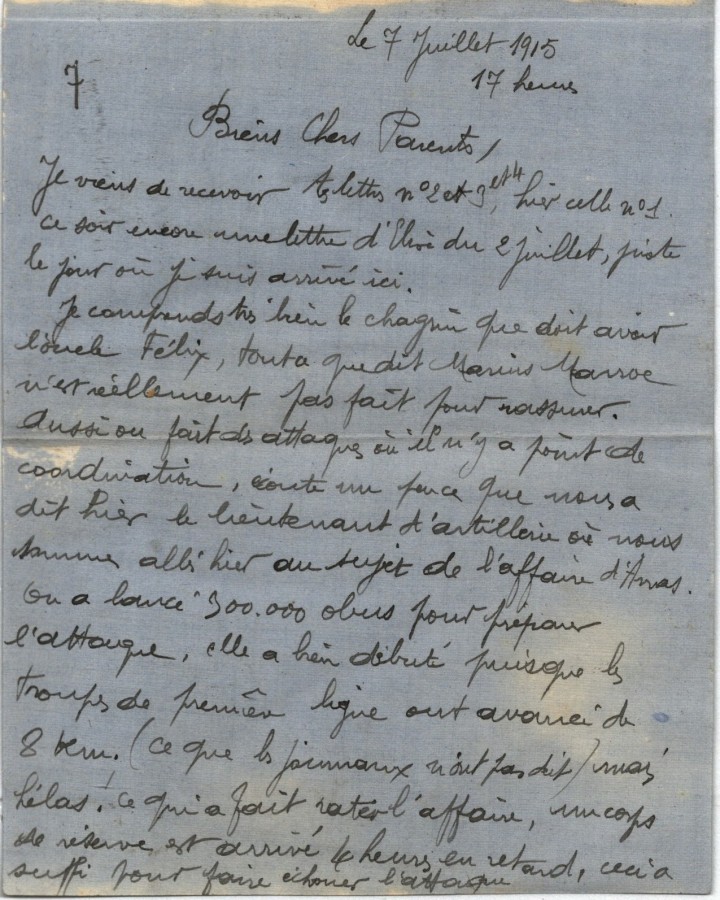 Le 7 Juillet 1915
17 heures
7
Biens Chers Parents,
Je viens de recevoir les lettres n°2 et 3 et 4, hier celle n°1.
ce soir encore une lettre d'Elise du 2 juillet, juste
le jour où je suis arrivé ici.
Je comprends très bien le chagrin que doit avoir
l'oncle Félix, tout a que dit Marius
n'est réellement pas fait pour rassurer.
Aussi on fait des attaques où il n'y a point de
coordination, écoute un peu ce que nous a
dit hier le lieutenant d'artillerie où nous
sommes allés hier au sujet de l'affaire d'Arras.
On a lancé 300.000 obus pour préparer
l'attaque, elle a bien débuté puisque les
troupes de première ligne ont avancé de
8 km. (ce que les journaux n'ont pas dit) mais
hélas! ce qui a fait rater l'affaire, un corps
de réserve est arrivé 4 heures en retard, ceci a
suffi pour faire échouer l'attaque